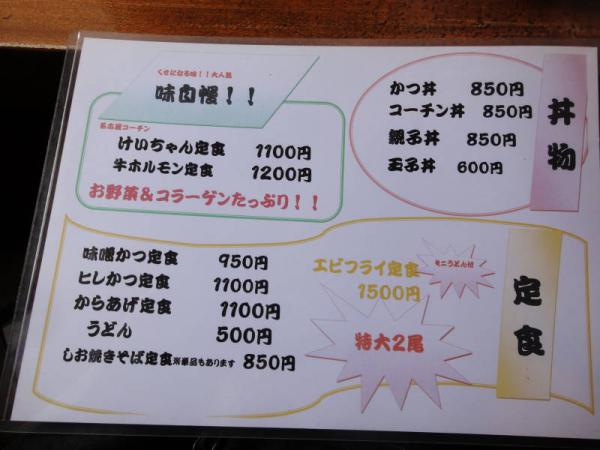 くせになる味！！大人気
味自慢！！
名古屋コーチン
けいちゃん定食 1100円
牛ホルモン定食 1200円
お野菜＆コラーゲンたっぷり！！
丼物
かつ丼 850円
コーチン丼 850円
親子丼 850円
玉子丼 600円
定食
味噌かつ定食 950円
ヒレかつ定食 1100円
からあげ定食 1100円
うどん 500円
しお焼きそば定食※単品もあります 850円
エビフライ定食
1500円
ミニうどん付
特大2尾